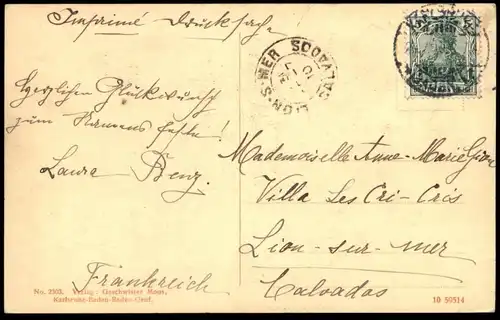 Imprimé Drucksache
Herzlichen Glückwunsch
zum Namensfeste!
Laura Benz
Mademoiselle Anne-Marie Gion
Villa Les Cri-Cris
Lion-sur-mer
Calvados
Frankreich
LION-S-MER CALVADOS
No. 2103. Verlag: Geschwister Moos,
Karlsruhe-Baden-Baden-Genf.
10 50514